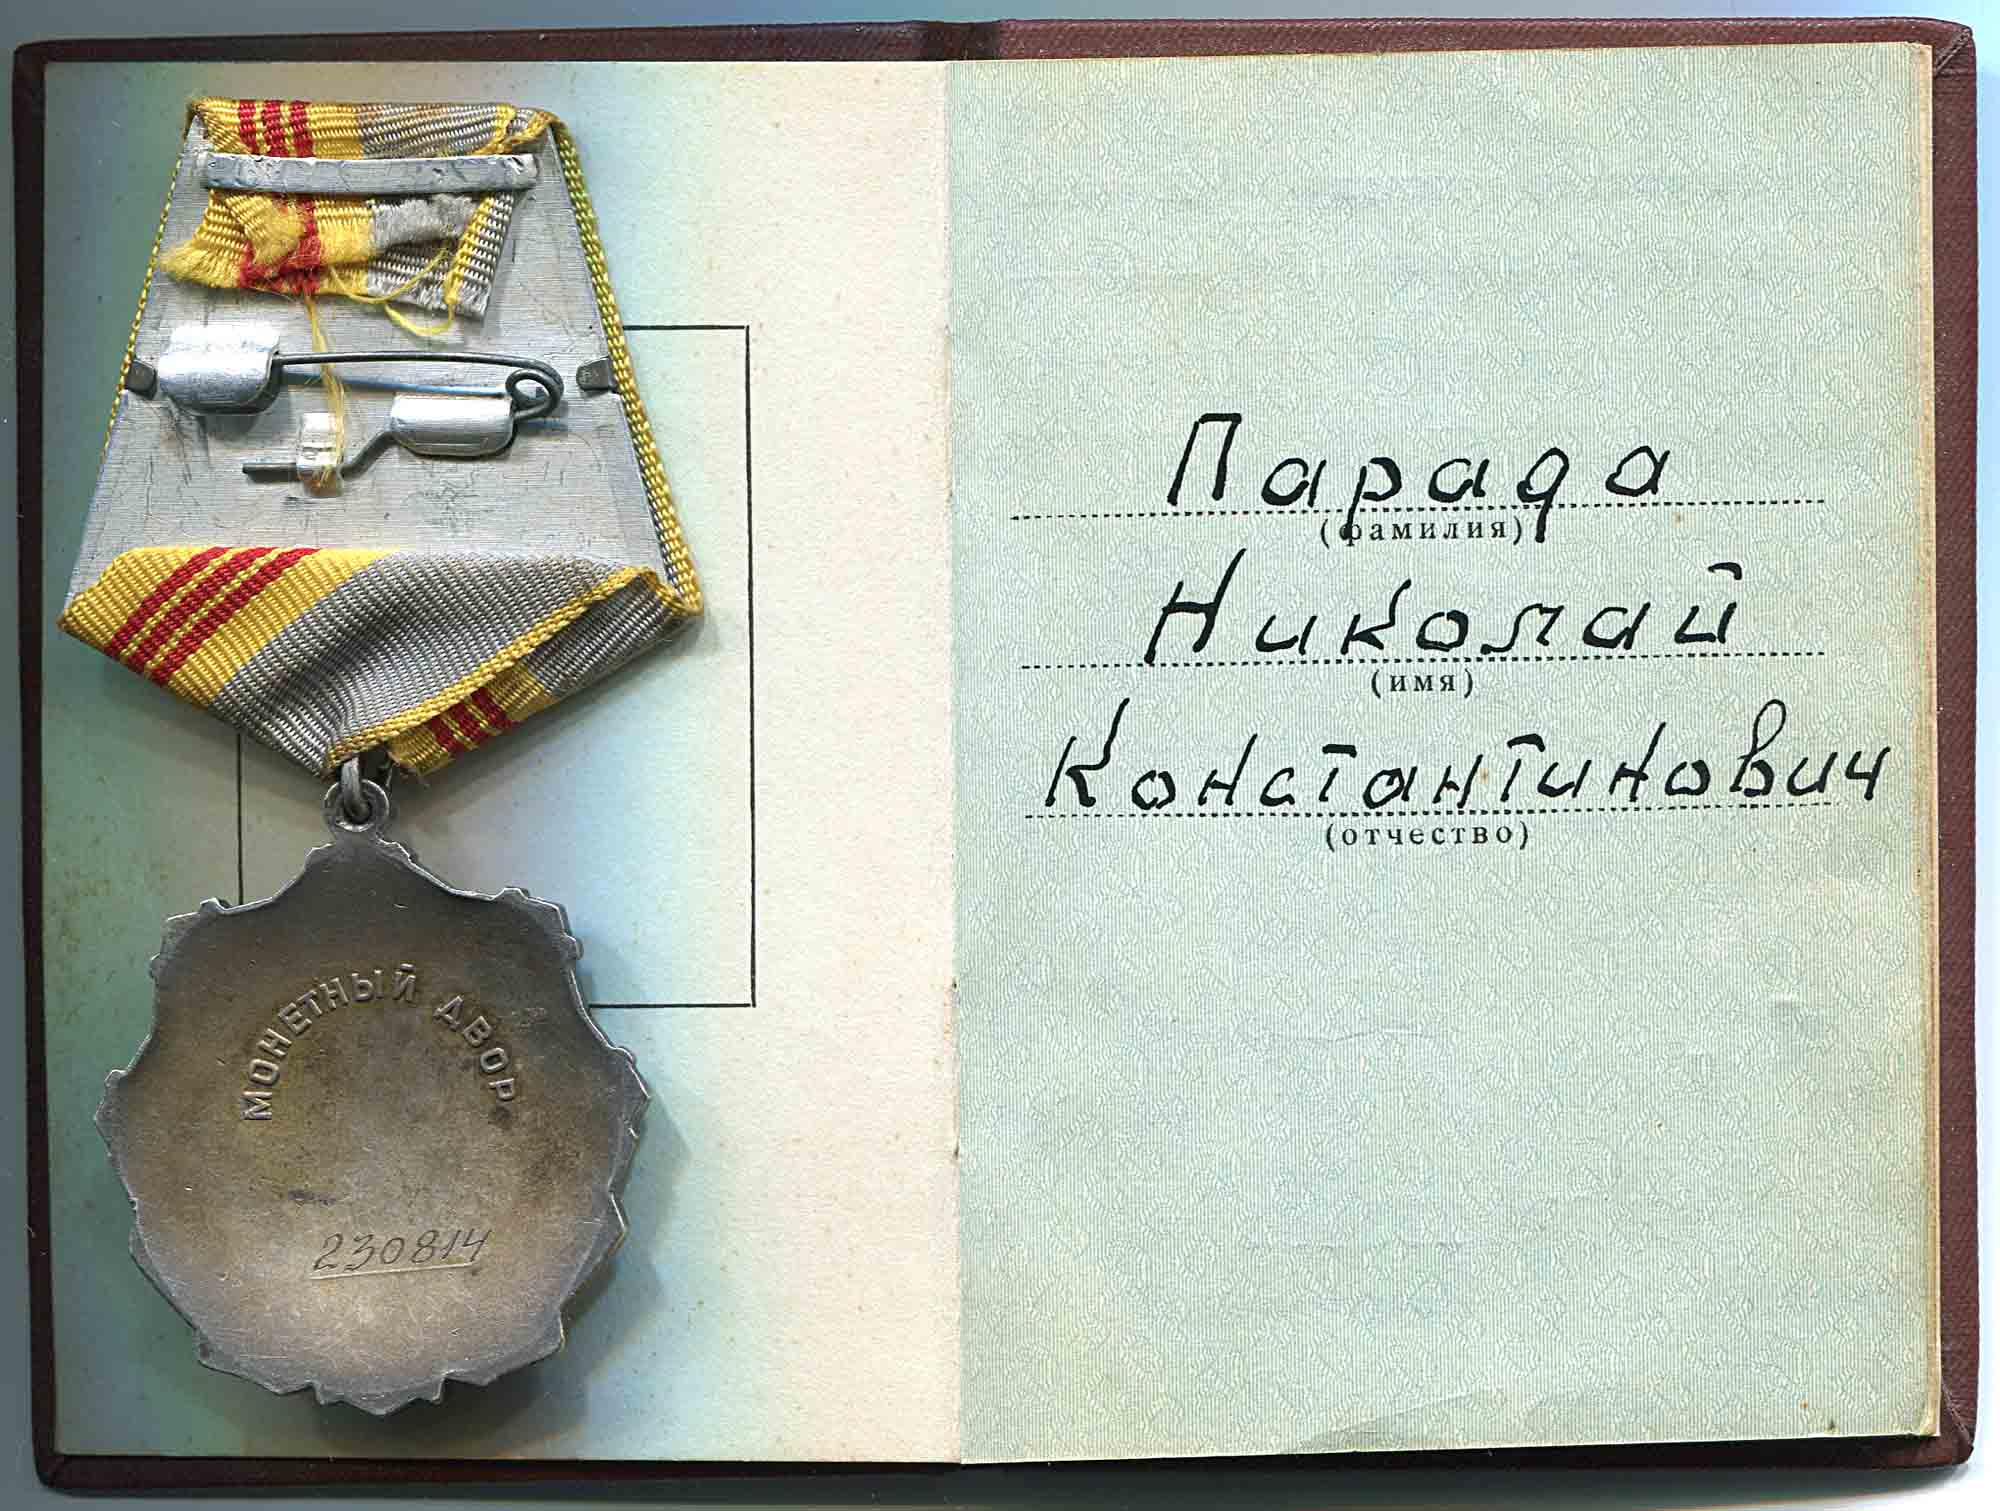 МОНЕТНЫЙ ДВОР
230814
Парада
(фамилия)
Николай
(имя)
Константинович
(отчество)